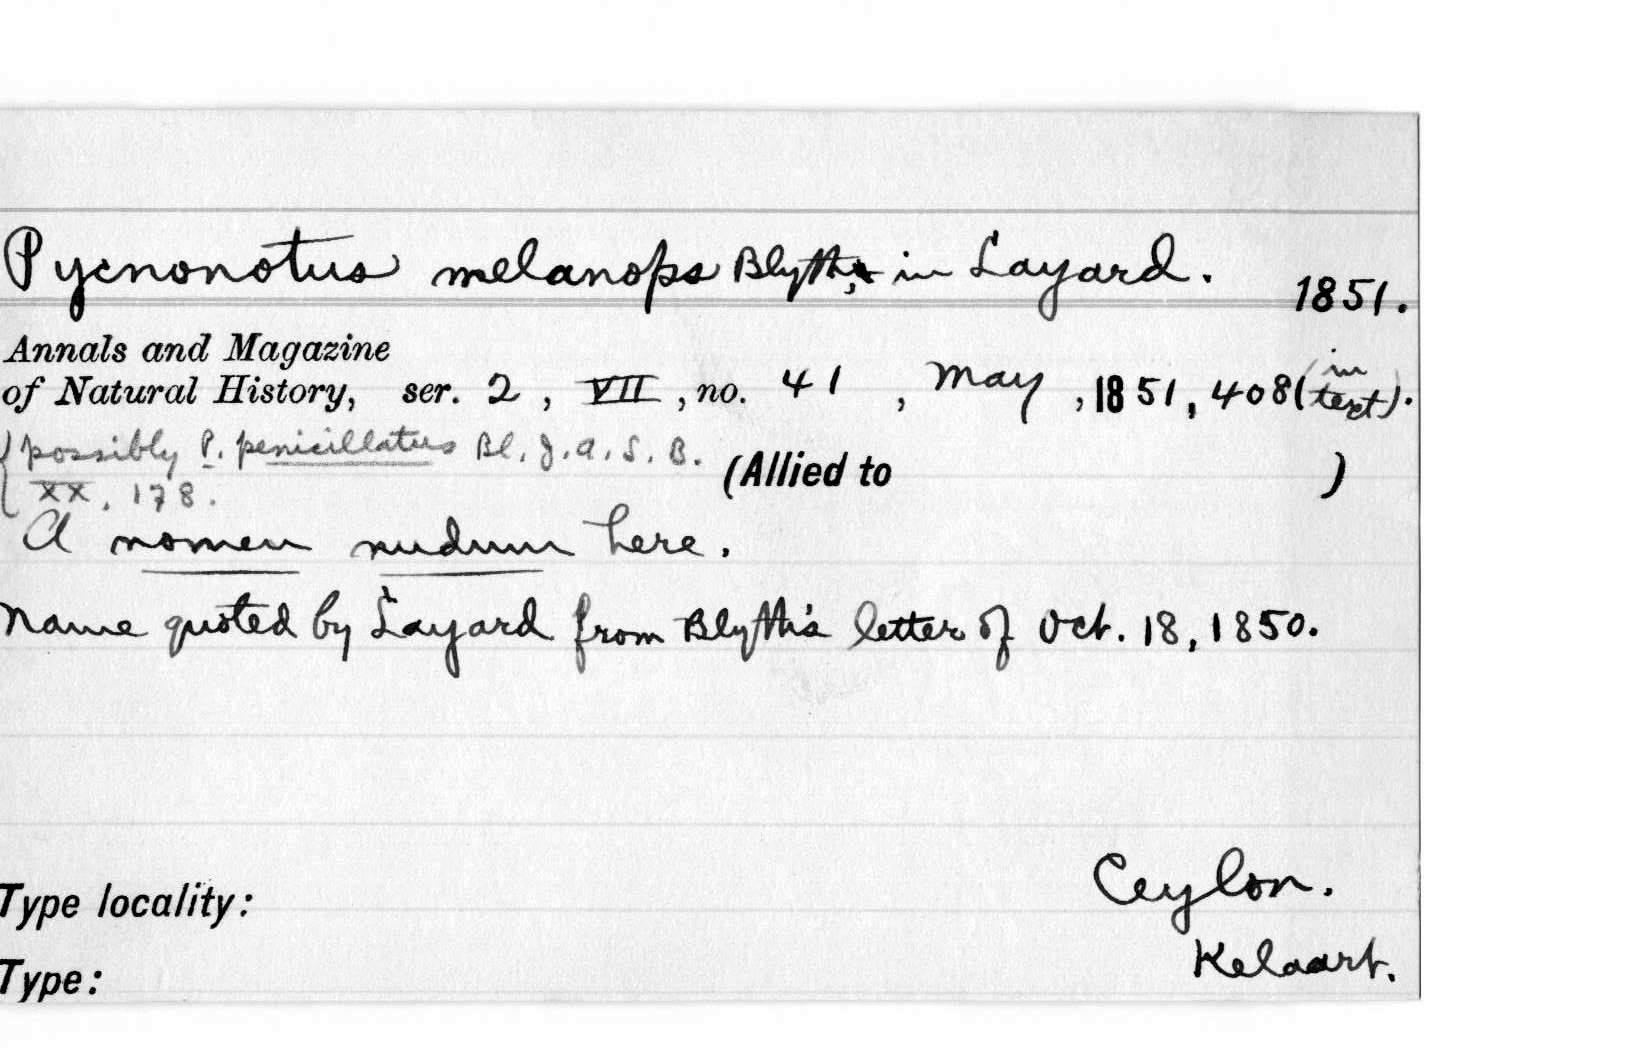 Pycnonotus melanops Blyth, in Layard. 1851.
Annals and Magazine
of Natural History, ser. 2, VII, no. 41, May, 1851, 408 (in text).
possibly P. penicillatus Bl. J.A.S.B.
XX, 178.
(Allied to )
A nomen nudum here.
Name quoted by Layard from Blyth's letter of Oct. 18, 1850.
Type locality: Ceylon.
Type: Kelaart.